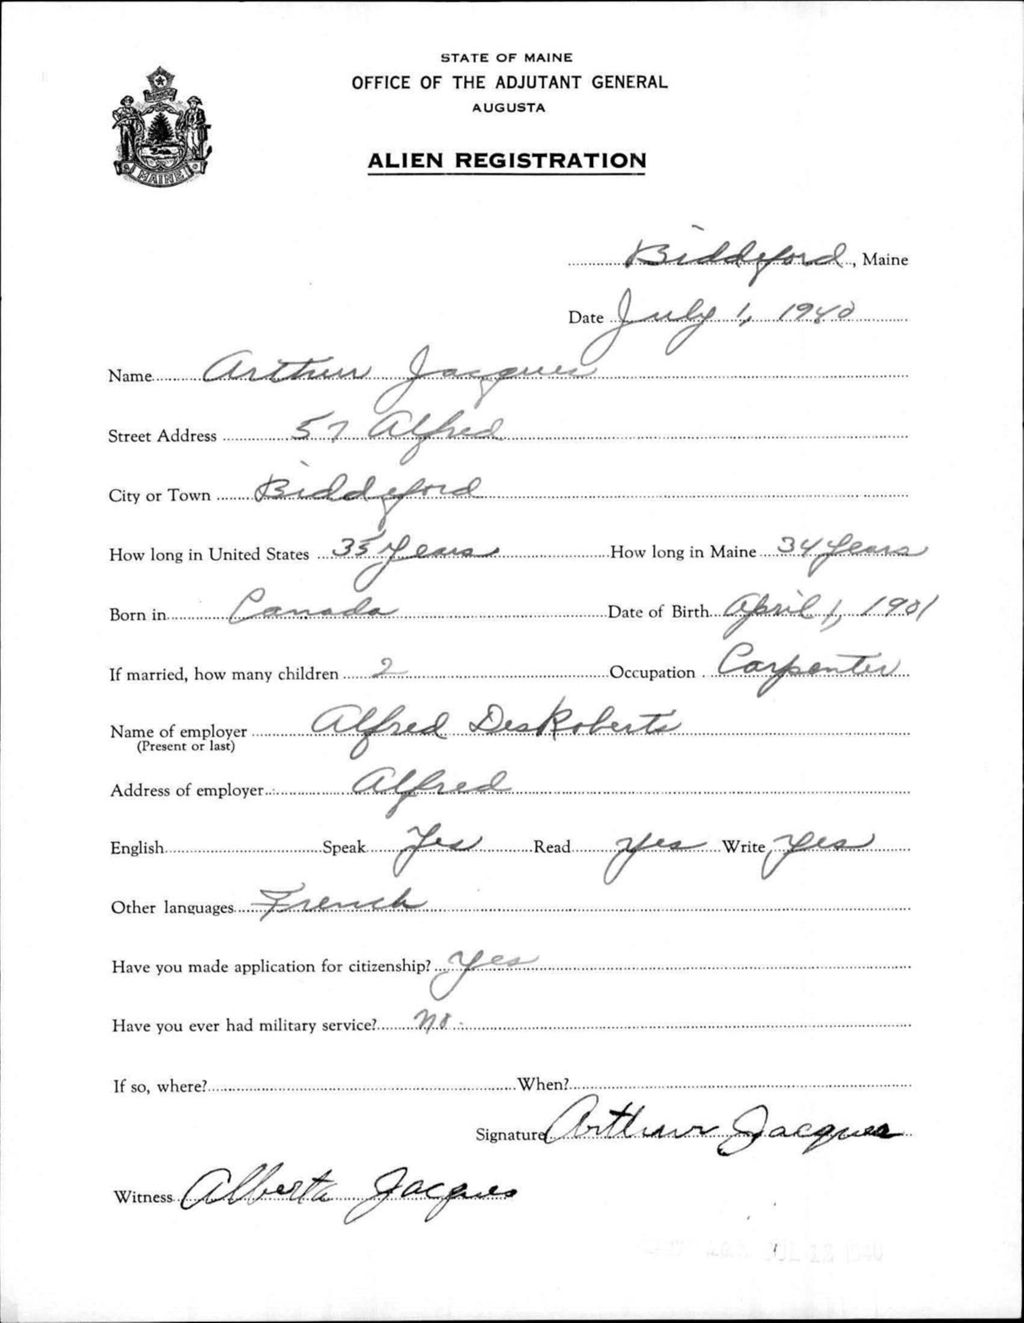 STATE OF MAINE
OFFICE OF THE ADJUTANT GENERAL
AUGUSTA
MAINE
ALIEN REGISTRATION
Biddeford, Maine
Date July 1, 1940
Name Arthur Jacques
Street Address 57 Alfred
City or Town Biddeford
How long in United States 35 years How long in Maine 34 years
Born in Canada Date of Birth April 1, 1901
If married, how many children 2 Occupation Carpenter
Name of employer Alfred DesRoberts
(Present or last)
Address of employer Alfred
English Speak Yes Read yes Write yes
Other languages French
Have you made application for citizenship? yes
Have you ever had military service? no
If so, where? When?
Signature Arthur Jacques
Witness Alberta Jacques
JUL 12 1940